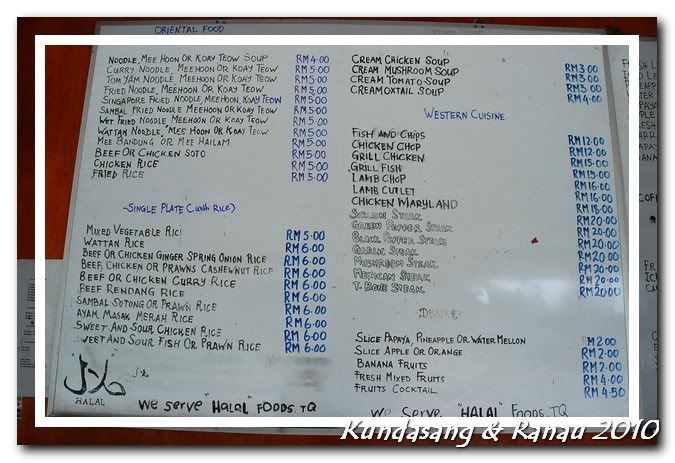 ORIENTAL FOOD
NOODLE, MEE HOON OR KOAY TEOW SOUP RM 4.00
CURRY NOODLE, MEEHOON OR KOAY TEOW RM 5.00
TOM YAM NOODLE, MEEHOON OR KOAY TEOW RM 5.00
FRIED NOODLE, MEEHOON OR KOAY TEOW RM 5.00
SINGAPORE FRIED NOODLE, MEEHOON, KOAY TEOW RM 5.00
SAMBAL FRIED NOODLE MEEHOON OR KOAY TEOW RM 5.00
WET FRIED NOODLE, MEEHOON OR KOAY TEOW RM 5.00
WATTAN NOODLE, MEE HOON OR KOAY TEOW RM 5.00
MEE BANDUNG OR MEE HAILAM RM 5.00
BEEF OR CHICKEN SOTO RM 5.00
CHICKEN RICE RM 5.00
FRIED RICE RM 5.00
~SINGLE PLATE (with RICE)
MIXED VEGETABLE RICE RM 5.00
WATTAN RICE RM 6.00
BEEF OR CHICKEN GINGER SPRING ONION RICE RM 6.00
BEEF, CHICKEN OR PRAWNS CASHEWNUT RICE RM 6.00
BEEF OR CHICKEN CURRY RICE RM 6.00
BEEF RENDANG RICE RM 6.00
SAMBAL SOTONG OR PRAWN RICE RM 6.00
AYAM MASAK MERAH RICE RM 6.00
SWEET AND SOUR CHICKEN RICE RM 6.00
SWEET AND SOUR FISH OR PRAWN RICE RM 6.00
حلال
HALAL
We SeRVe "HALAL" FOODS.TQ
CREAM CHICKEN SOUP RM 3.00
CREAM MUSHROOM SOUP RM 3.00
CREAM TOMATO SOUP RM 3.00
CREAM OXTAIL SOUP RM 4.00
WESTERN CUISINE
FISH AND CHIPS RM 12.00
CHICKEN CHOP RM 12.00
GRILL CHICKEN RM 15.00
GRILL FISH RM 15.00
LAMB CHOP RM 16.00
LAMB CUTLET RM 16.00
CHICKEN MARYLAND RM 18.00
SIRLOIN STEAK RM 20.00
GREEN PEPPER STEAK RM 20.00
BLACK PEPPER STEAK RM 20.00
GARLIC STEAK RM 20.00
MUSHROOM STEAK RM 20.00
MEXICAN STEAK RM 20.00
T. BONE STEAK RM 20.00
DESSERT
SLICE PAPAYA, PINEAPPLE OR WATER MELLON RM 2.00
SLICE APPLE OR ORANGE RM 2.00
BANANA FRUITS RM 2.00
FRESH MIXED FRUITS RM 4.00
FRUITS COCKTAIL RM 4.50
We Serve "HALAL" Foods.TQ
Kundasang & Ranau 2010